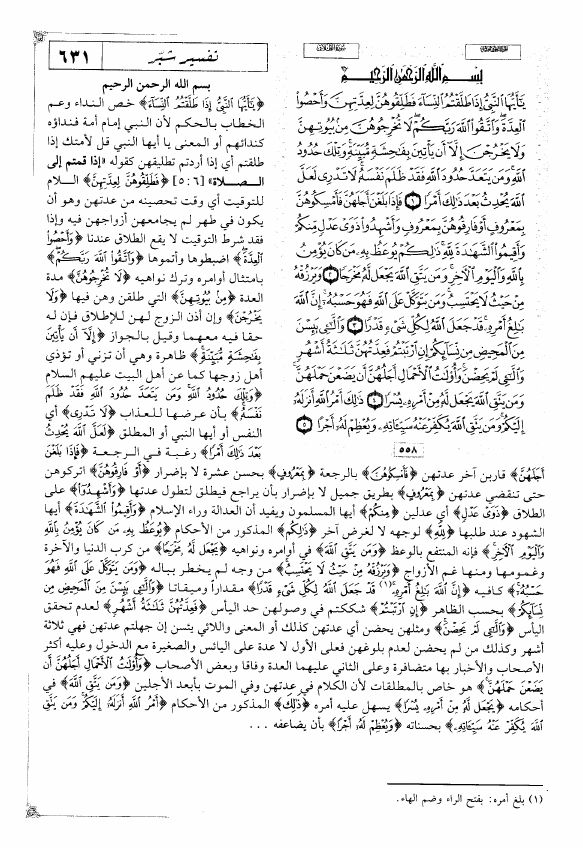 تفسير شبّر
٦٣١
بِسْمِ اللَّهِ الرَّحْمَٰنِ الرَّحِيمِ
يَٰٓأَيُّهَا ٱلنَّبِىُّ إِذَا طَلَّقْتُمُ ٱلنِّسَآءَ فَطَلِّقُوهُنَّ لِعِدَّتِهِنَّ وَأَحْصُوا۟
ٱلْعِدَّةَ وَٱتَّقُوا۟ ٱللَّهَ رَبَّكُمْ لَا تُخْرِجُوهُنَّ مِنۢ بُيُوتِهِنَّ
وَلَا يَخْرُجْنَ إِلَّآ أَن يَأْتِينَ بِفَٰحِشَةٍ مُّبَيِّنَةٍ وَتِلْكَ حُدُودُ
ٱللَّهِ وَمَن يَتَعَدَّ حُدُودَ ٱللَّهِ فَقَدْ ظَلَمَ نَفْسَهُۥ لَا تَدْرِى لَعَلَّ
ٱللَّهَ يُحْدِثُ بَعْدَ ذَٰلِكَ أَمْرًا ١ فَإِذَا بَلَغْنَ أَجَلَهُنَّ فَأَمْسِكُوهُنَّ
بِمَعْرُوفٍ أَوْ فَارِقُوهُنَّ بِمَعْرُوفٍ وَأَشْهِدُوا۟ ذَوَىْ عَدْلٍ مِّنكُمْ
وَأَقِيمُوا۟ ٱلشَّهَٰدَةَ لِلَّهِ ذَٰلِكُمْ يُوعَظُ بِهِۦ مَن كَانَ يُؤْمِنُ
بِٱللَّهِ وَٱلْيَوْمِ ٱلْءَاخِرِ وَمَن يَتَّقِ ٱللَّهَ يَجْعَل لَّهُۥ مَخْرَجًا ٢ وَيَرْزُقْهُ
مِنْ حَيْثُ لَا يَحْتَسِبُ وَمَن يَتَوَكَّلْ عَلَى ٱللَّهِ فَهُوَ حَسْبُهُۥٓ إِنَّ ٱللَّهَ
بَٰلِغُ أَمْرِهِۦ قَدْ جَعَلَ ٱللَّهُ لِكُلِّ شَىْءٍ قَدْرًا ٣ وَٱلَّٰٓـِٔى يَئِسْنَ
مِنَ ٱلْمَحِيضِ مِن نِّسَآئِكُمْ إِنِ ٱرْتَبْتُمْ فَعِدَّتُهُنَّ ثَلَٰثَةُ أَشْهُرٍ
وَٱلَّٰٓـِٔى لَمْ يَحِضْنَ وَأُو۟لَٰتُ ٱلْأَحْمَالِ أَجَلُهُنَّ أَن يَضَعْنَ حَمْلَهُنَّ
وَمَن يَتَّقِ ٱللَّهَ يَجْعَل لَّهُۥ مِنْ أَمْرِهِۦ يُسْرًا ٤ ذَٰلِكَ أَمْرُ ٱللَّهِ أَنزَلَهُۥٓ
إِلَيْكُمْ وَمَن يَتَّقِ ٱللَّهَ يُكَفِّرْ عَنْهُ سَيِّـَٔاتِهِۦ وَيُعْظِمْ لَهُۥٓ أَجْرًا ٥
٥٥٨
بسم الله الرحمن الرحيم
﴿يَٰٓأَيُّهَا ٱلنَّبِىُّ إِذَا طَلَّقْتُمُ ٱلنِّسَآءَ﴾ خص النداء وعم
الخطاب بالحكم لأن النبي إمام أمة فنداؤه
كندائهم أو المعنى يا أيها النبي قل لأمتك إذا
طلقتم أي إذا أردتم تطليقهن كقوله «إذا قمتم إلى
الصلاة» [٥:٦] ﴿فَطَلِّقُوهُنَّ لِعِدَّتِهِنَّ﴾ اللام
للتوقيت أي وقت تحصينه من عدتهن وهو أن
يكون في طهر لم يجامعهن أزواجهن فيه وإذا
فقد شرط التوقيت لا يقع الطلاق عندنا ﴿وَأَحْصُوا۟
ٱلْعِدَّةَ﴾ اضبطوها وأتموها ﴿وَٱتَّقُوا۟ ٱللَّهَ رَبَّكُمْ﴾
بامتثال أوامره وترك نواهيه ﴿لَا تُخْرِجُوهُنَّ﴾ مدة
العدة ﴿مِنۢ بُيُوتِهِنَّ﴾ التي طلقن وهن فيها ﴿وَلَا
يَخْرُجْنَ﴾ وإن أذن الزوج لهن للإطلاق فإن له
حقا فيه معهما وقيل بالجواز ﴿إِلَّآ أَن يَأْتِينَ
بِفَٰحِشَةٍ مُّبَيِّنَةٍ﴾ ظاهرة وهي أن تزني أو تؤذي
أهل زوجها كما عن أهل البيت عليهم السلام
﴿وَتِلْكَ حُدُودُ ٱللَّهِ وَمَن يَتَعَدَّ حُدُودَ ٱللَّهِ فَقَدْ ظَلَمَ
نَفْسَهُۥ﴾ بأن عرضها للعذاب ﴿لَا تَدْرِى﴾ أي
النفس أو أيها النبي أو المطلق ﴿لَعَلَّ ٱللَّهَ يُحْدِثُ
بَعْدَ ذَٰلِكَ أَمْرًا﴾ رغبة في الرجعة ﴿فَإِذَا بَلَغْنَ
أَجَلَهُنَّ﴾ قاربن آخر عدتهن ﴿فَأَمْسِكُوهُنَّ﴾ بالرجعة ﴿بِمَعْرُوفٍ﴾ بحسن عشرة لا بإضرار ﴿أَوْ فَارِقُوهُنَّ﴾ اتركوهن
حتى تنقضي عدتهن ﴿بِمَعْرُوفٍ﴾ بطريق جميل لا بإضرار بأن يراجع فيطلق لتطول عدتها ﴿وَأَشْهِدُوا۟﴾ على
الطلاق ﴿ذَوَىْ عَدْلٍ﴾ أي عدلين ﴿مِّنكُمْ﴾ أيها المسلمون ويفيد أن العدالة وراء الإسلام ﴿وَأَقِيمُوا۟ ٱلشَّهَٰدَةَ﴾ أيها
الشهود عند طلبها ﴿لِلَّهِ﴾ لوجهه لا لغرض آخر ﴿ذَٰلِكُمْ﴾ المذكور من الأحكام ﴿يُوعَظُ بِهِۦ مَن كَانَ يُؤْمِنُ بِٱللَّهِ
وَٱلْيَوْمِ ٱلْءَاخِرِ﴾ فإنه المنتفع بالوعظ ﴿وَمَن يَتَّقِ ٱللَّهَ﴾ في أوامره ونواهيه ﴿يَجْعَل لَّهُۥ مَخْرَجًا﴾ من كرب الدنيا والآخرة
وغمومها ومنها غم الأزواج ﴿وَيَرْزُقْهُ مِنْ حَيْثُ لَا يَحْتَسِبُ﴾ من وجه لم يخطر بباله ﴿وَمَن يَتَوَكَّلْ عَلَى ٱللَّهِ فَهُوَ
حَسْبُهُۥٓ﴾ كافيه ﴿إِنَّ ٱللَّهَ بَٰلِغُ أَمْرِهِۦ﴾(١) ﴿قَدْ جَعَلَ ٱللَّهُ لِكُلِّ شَىْءٍ قَدْرًا﴾ مقداراً وميقاتا ﴿وَٱلَّٰٓـِٔى يَئِسْنَ مِنَ ٱلْمَحِيضِ مِن
نِّسَآئِكُمْ﴾ بحسب الظاهر ﴿إِنِ ٱرْتَبْتُمْ﴾ شككتم في وصولهن حد اليأس ﴿فَعِدَّتُهُنَّ ثَلَٰثَةُ أَشْهُرٍ﴾ لعدم تحقق
اليأس ﴿وَٱلَّٰٓـِٔى لَمْ يَحِضْنَ﴾ ومثلهن يحضن أي عدتهن كذلك أو المعنى واللائي يئسن إن جهلتم عدتهن فهي ثلاثة
أشهر وكذلك من لم يحضن لعدم بلوغهن فعلى الأول لا عدة على اليائس والصغيرة مع الدخول وعليه أكثر
الأصحاب والأخبار بها متضافرة وعلى الثاني عليهما العدة وفاقا وبعض الأصحاب ﴿وَأُو۟لَٰتُ ٱلْأَحْمَالِ أَجَلُهُنَّ أَن
يَضَعْنَ حَمْلَهُنَّ﴾ هو خاص بالمطلقات لأن الكلام في عدتهن وفي الموت بأبعد الأجلين ﴿وَمَن يَتَّقِ ٱللَّهَ﴾ في
أحكامه ﴿يَجْعَل لَّهُۥ مِنْ أَمْرِهِۦ يُسْرًا﴾ يسهل عليه أمره ﴿ذَٰلِكَ﴾ المذكور من الأحكام ﴿أَمْرُ ٱللَّهِ أَنزَلَهُۥٓ إِلَيْكُمْ وَمَن يَتَّقِ
ٱللَّهَ يُكَفِّرْ عَنْهُ سَيِّـَٔاتِهِۦ﴾ بحسناته ﴿وَيُعْظِمْ لَهُۥٓ أَجْرًا﴾ بأن يضاعفه ...
(١) بلغ أمره: بفتح الراء وضم الهاء.